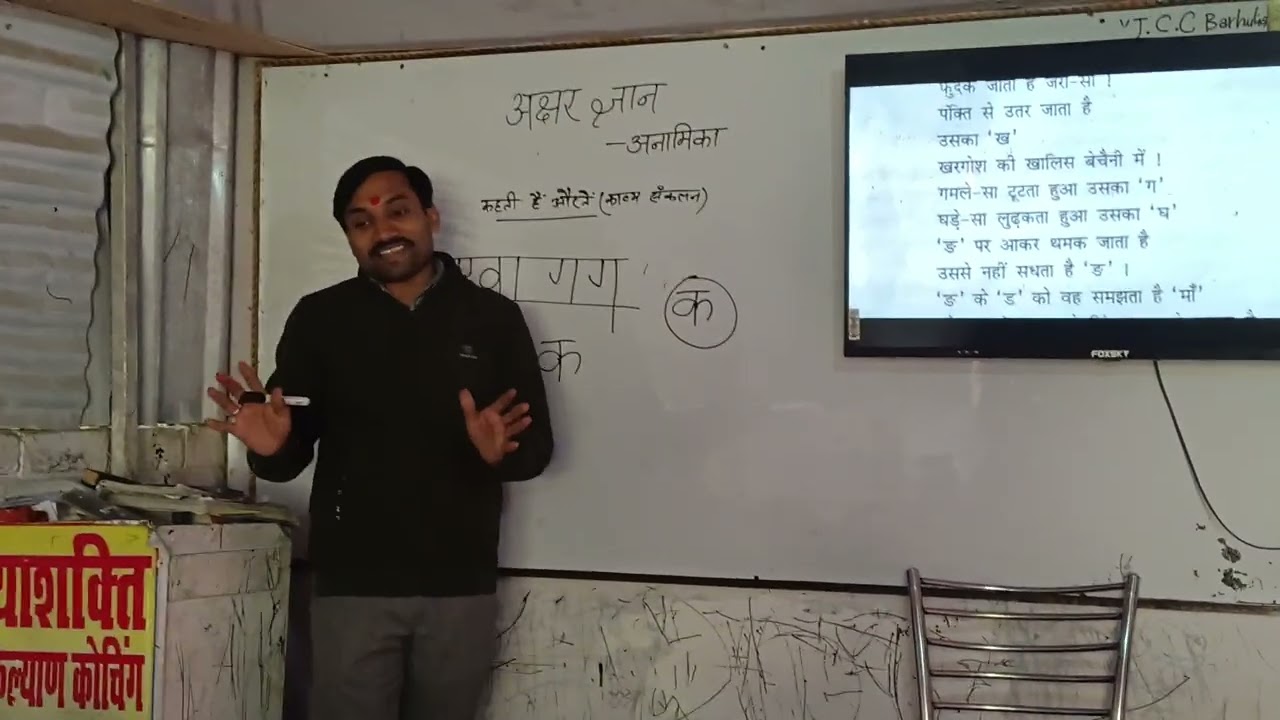 J.C.C Barhuli
अक्षर ज्ञान
-अनामिका
कहती हैं औरतें (काव्य संकलन)
खा गग
क
क
फुदक जाता है जरा-सा !
पंक्ति से उतर जाता है
उसका 'ख'
खरगोश की खालिस बेचैनी में !
गमले-सा टूटता हुआ उसका 'ग'
घड़े-सा लुढ़कता हुआ उसका 'घ'
'ङ' पर आकर थमक जाता है
उससे नहीं सधता है 'ङ' ।
'ङ' के 'ड' को वह समझता है 'माँ'
FOXSKY
याशक्ति
कल्याण कोचिंग